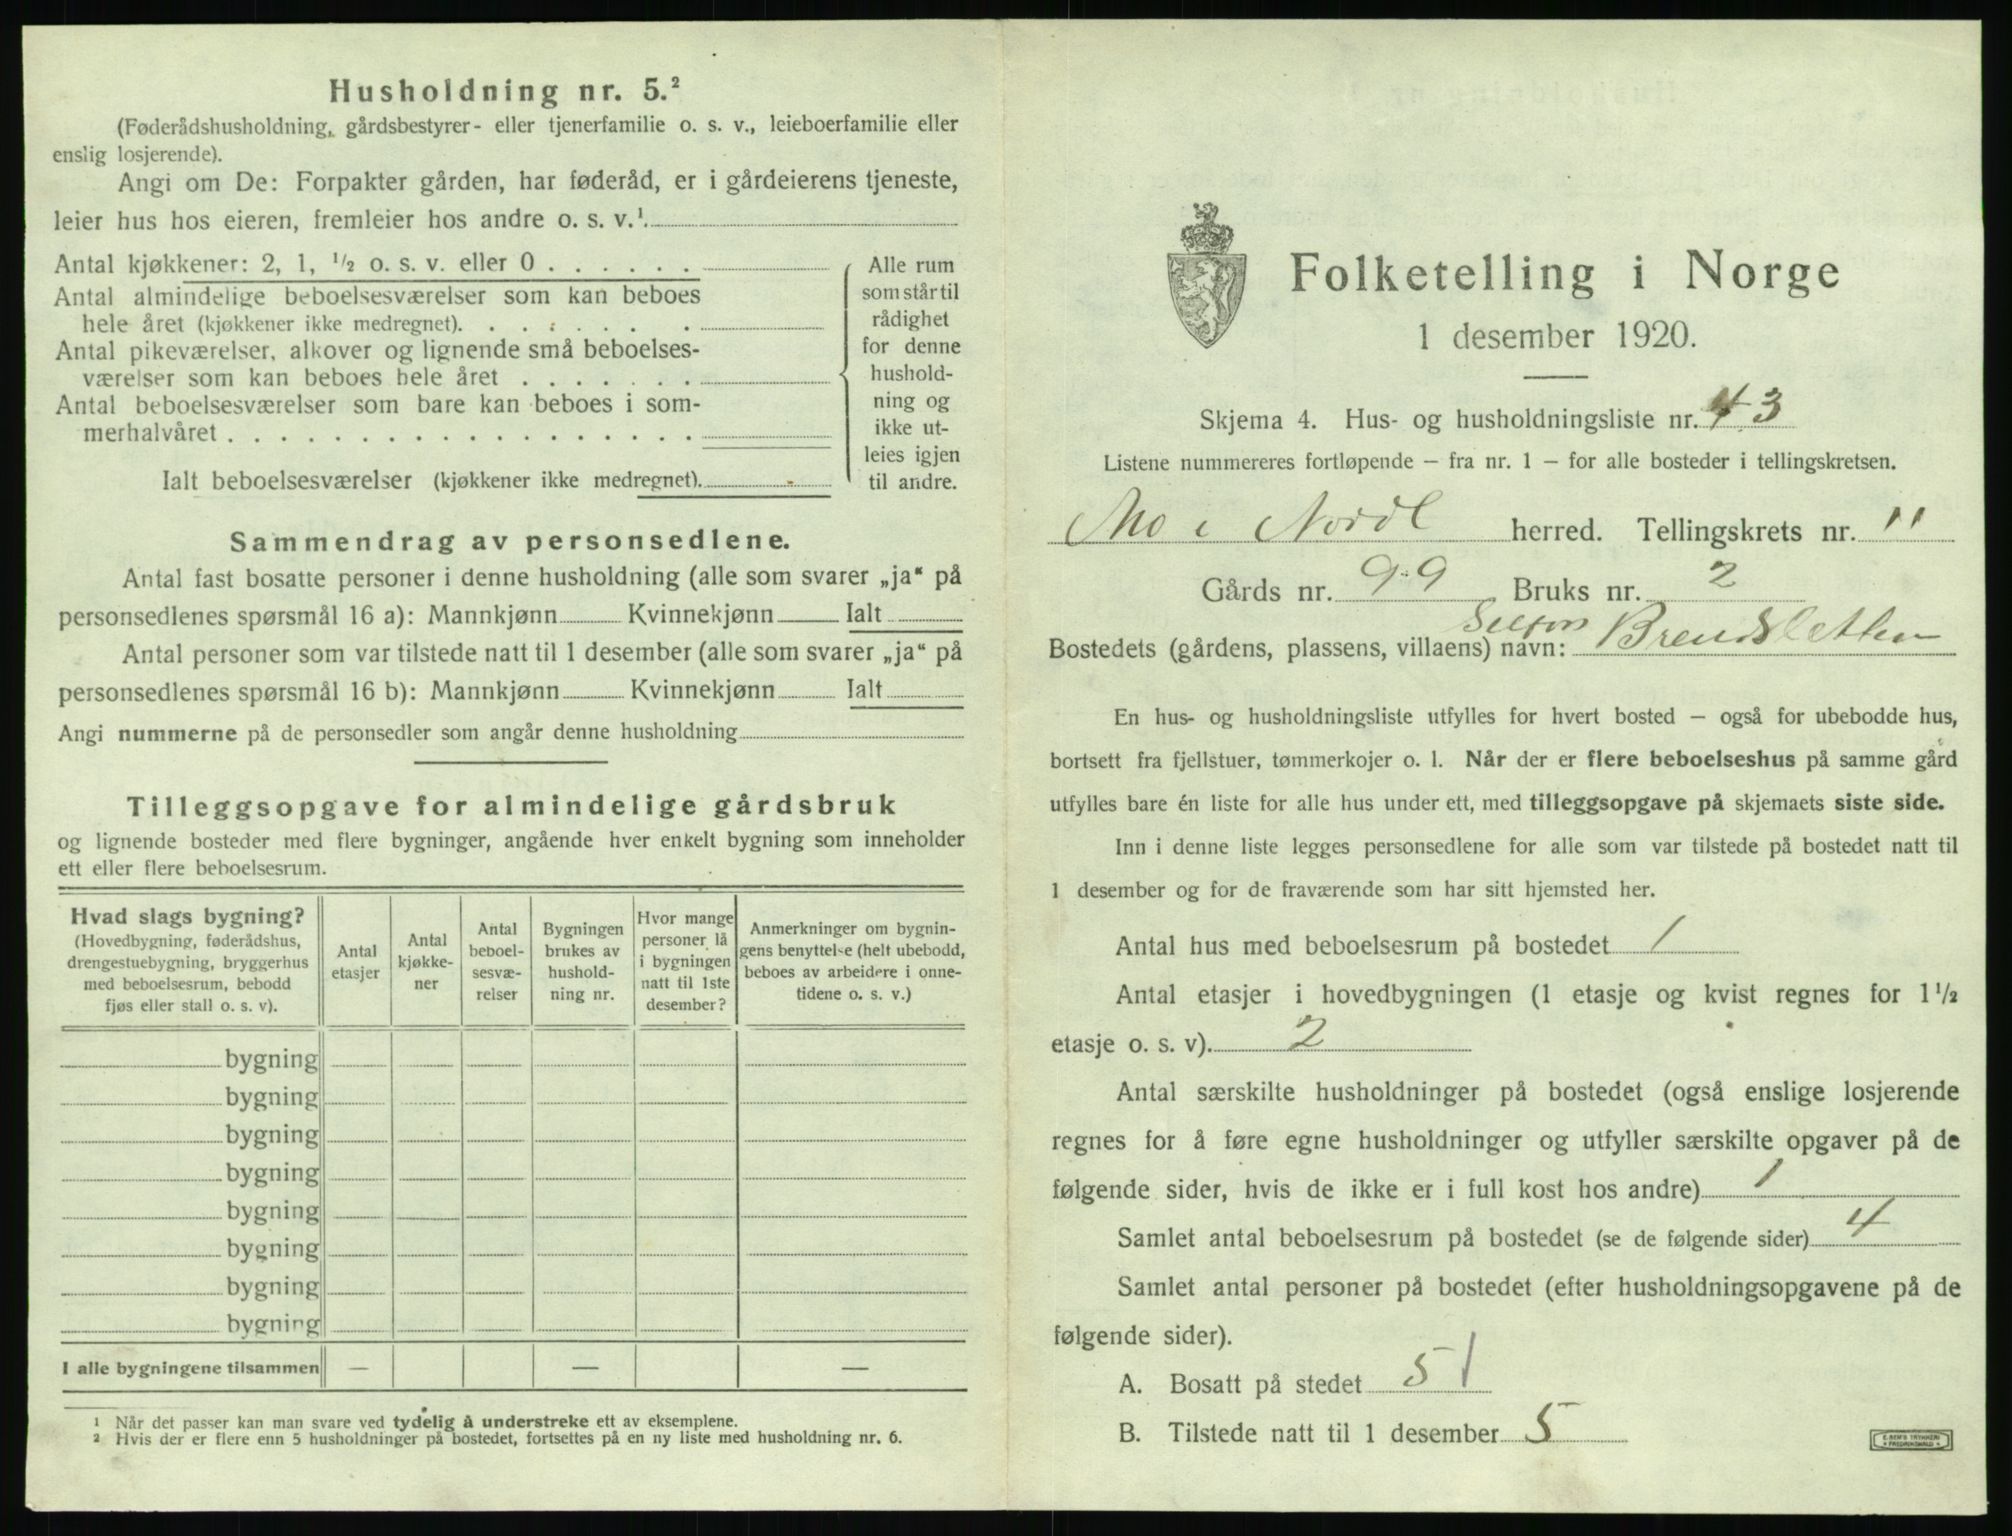 Husholdning nr. 5.²
(Føderådshusholdning, gårdsbestyrer- eller tjenerfamilie o. s. v., leieboerfamilie eller
enslig losjerende).
Angi om De: Forpakter gården, har føderåd, er i gårdeierens tjeneste,
leier hus hos eieren, fremleier hos andre o. s. v.¹.
Antal kjøkkener: 2, 1, ½ o. s. v. eller 0 . . . . . .
Antal almindelige beboelsesværelser som kan beboes
hele året (kjøkkener ikke medregnet). . . . . . . .
Antal pikeværelser, alkover og lignende små beboelses-
værelser som kan beboes hele året . . . . . . .
Antal beboelsesværelser som bare kan beboes i som-
merhalvåret . . . . . . . . . . . . . . . . . .
Ialt beboelsesværelser (kjøkkener ikke medregnet).
Alle rum
som står til
rådighet
for denne
hushold-
ning og
ikke ut-
leies igjen
til andre.
Sammendrag av personsedlene.
Antal fast bosatte personer i denne husholdning (alle som svarer „ja“ på
personsedlenes spørsmål 16 a): Mannkjønn Kvinnekjønn Ialt
Antal personer som var tilstede natt til 1 desember (alle som svarer „ja“ på
personsedlenes spørsmål 16 b): Mannkjønn Kvinnekjønn Ialt
Angi nummerne på de personsedler som angår denne husholdning
Tilleggsopgave for almindelige gårdsbruk
og lignende bosteder med flere bygninger, angående hver enkelt bygning som inneholder
ett eller flere beboelsesrum.
Hvad slags bygning?
(Hovedbygning, føderådshus,
drengestuebygning, bryggerhus
med beboelsesrum, bebodd
fjøs eller stall o. s. v).
Antal
etasjer
Antal
kjøkke-
ner
Antal
beboel-
sesvæ-
relser
Bygningen
brukes av
hushold-
ning nr.
Hvor mange
personer lå
i bygningen
natt til 1ste
desember?
Anmerkninger om bygnin-
gens benyttelse (helt ubebodd,
beboes av arbeidere i onne-
tidene o. s. v.)
bygning
bygning
bygning
bygning
bygning
bygning
bygning
bygning
I alle bygningene tilsammen — — —
¹ Når det passer kan man svare ved tydelig å understreke ett av eksemplene.
² Hvis der er flere enn 5 husholdninger på bostedet, fortsettes på en ny liste med husholdning nr. 6.
Folketelling i Norge
1 desember 1920.
Skjema 4. Hus- og husholdningsliste nr. 43
Listene nummereres fortløpende – fra nr. 1 – for alle bosteder i tellingskretsen.
Mo i Nordl herred. Tellingskrets nr. 11
Gårds nr. 99 Bruks nr. 2
Bostedets (gårdens, plassens, villaens) navn: Brendsletten
En hus- og husholdningsliste utfylles for hvert bosted – også for ubebodde hus,
bortsett fra fjellstuer, tømmerkojer o. l. Når der er flere beboelseshus på samme gård
utfylles bare én liste for alle hus under ett, med tilleggsopgave på skjemaets siste side.
Inn i denne liste legges personsedlene for alle som var tilstede på bostedet natt til
1 desember og for de fraværende som har sitt hjemsted her.
Antal hus med beboelsesrum på bostedet 1
Antal etasjer i hovedbygningen (1 etasje og kvist regnes for 1½
etasje o. s. v). 2
Antal særskilte husholdninger på bostedet (også enslige losjerende
regnes for å føre egne husholdninger og utfyller særskilte opgaver på de
følgende sider, hvis de ikke er i full kost hos andre) 1
Samlet antal beboelsesrum på bostedet (se de følgende sider) 4
Samlet antal personer på bostedet (efter husholdningsopgavene på de
følgende sider).
A. Bosatt på stedet 5
B. Tilstede natt til 1 desember 5